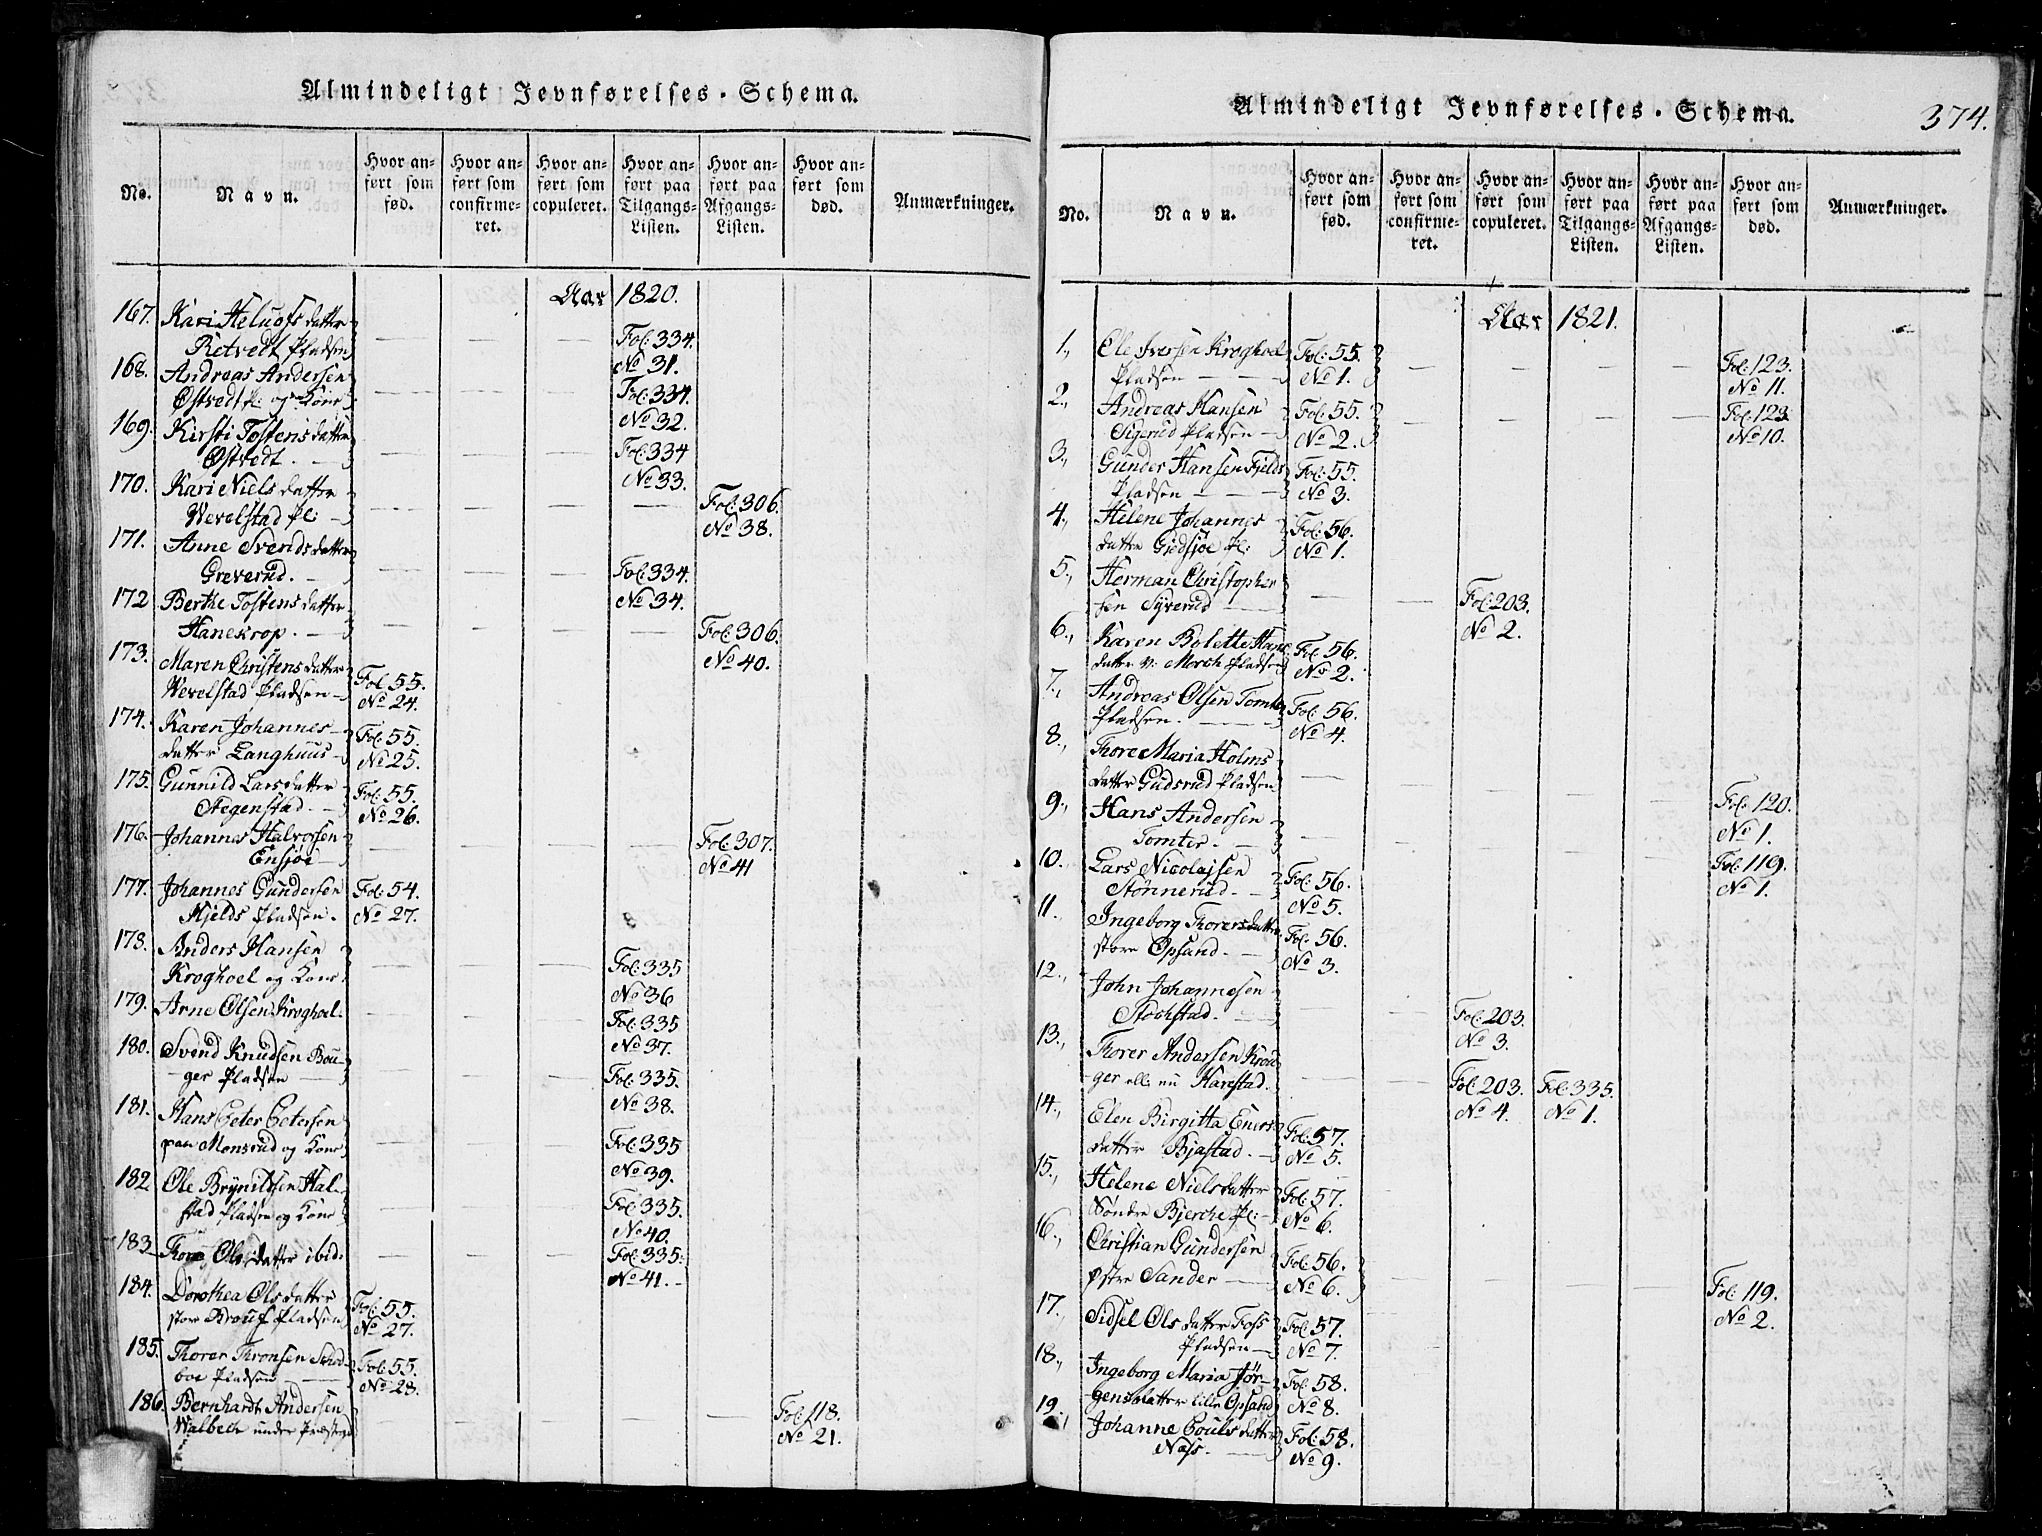 Almindeligt Jevnførelses-Schema.
No. Navn. Hvor anført som fød. Hvor anført som confirmeret. Hvor anført som copuleret. Hvor anført paa Tilgangs-Listen. Hvor anført paa Afgangs-Listen. Hvor anført som død. Anmærkninger.
Aar 1820.
167. Kari Helugs datter
Retvedt Pladsen — — — Fol: 334. No 31.
168. Andreas Andersen
Østvedt Pl: og Kone — — — Fol: 334. No 32.
169. Kirsti Tostens datter
Østvedt. — — — Fol: 334 No 33.
170. Kari Niels datter
Wevelstad Pl: — — — — Fol: 306. No 38.
171. Anne Svends datter
Greverud. — — — Fol: 334. No 34.
172 Berthe Tostens datter
Hanekrop. — — — — Fol: 306. No 40.
173. Maren Christens datter
Wevelstad Pladsen Fol: 55. No 24.
174. Karen Johannes-
datter Langhuus Fol: 55. No 25.
175. Gunnild Larsdatter
Stegenstad. Fol: 55. No 26.
176. Johannes Halvorsen
Ensjøe — — — — Fol: 307. No 41
177. Johannes Gundersen
Mjelds Pladsen. Fol: 54. No 27.
178. Anders Hansen
Kroghoel og Kone — — — Fol: 335 No 36
179. Arne Olsen Kroghoel. — — — Fol: 335 No 37.
180. Svend Knudsen Bou-
ger Pladsen — — — Fol: 335. No 38.
181. Hans Peter Petersen
paa Monsrud og Kone — — — Fol: 335 No 39.
182 Ole Brynildsen Hal-
stad Pladsen og Kone — — — Fol: 335. No 40.
183 Thore Ols datter ibid: — — — Fol: 335: No 41.
184. Dorothea Ols datter
store Pladsen Fol: 55. No 27.
185. Thorer Thronsen
boe Pladsen Fol: 55. No 28.
186 Bernhardt Andersen
Walbeck under — — — — — Fol: 118. No 21.
Almindeligt Jevnførelses-Schema.
374.
No. Navn. Hvor anført som fød. Hvor anført som confirmeret. Hvor anført som copuleret. Hvor anført paa Tilgangs-Listen. Hvor anført paa Afgangs-Listen. Hvor anført som død. Anmærkninger.
Aar 1821.
1., Ole Iversen Kroghoel
Pladsen — Fol: 55. No 1. — — — — Fol: 123. No 11.
2., Andreas Hansen
Sigerud Pladsen Fol: 55. No 2. — — — — Fol: 123 No 10.
3., Gunder Hansen Fjelds
Pladsen — Fol: 55. No 3.
4., Helene Johannes
datter Gudsjøe Pl: Fol: 56. No 1.
5., Herman Christopher
sen Syverud — — Fol: 203. No 2.
6., Karen Bolette Hans
datter v: Morch Pladsen Fol: 56. No 2.
7., Andreas Olsen Tomter
Pladsen. Fol: 56. No 4.
8., Thore Maria Holms-
datter Gudsrud Pladsen — — — — — Fol: 120. No 1.
9., Hans Andersen
Tomter. — — — — — Fol: 119. No 1.
10., Lars Nicolajsen
Stønnerud. Fol: 56. No 5.
11., Ingeborg Thorersdatter
store Opsand. Fol: 56. No 3.
12., John Johannesen
Stockstad. — — Fol: 203. No 3.
13., Thorer Andersen Krou-
ger elle nu Harestad. — — Fol: 203. No 4. Fol: 335. No 1.
14., Elen Birgitta Eners
datter Bjastad. Fol: 57. No 5.
15., Helene Nielsdatter
Søndre Bjerche Pl: Fol: 57. No 6.
16., Christian Gundersen
østre Sander Fol: 56. No 6. — — — — Fol: 119. No 2.
17., Sidsel Ols datter Foss
Pladsen Fol: 57. No 7.
18., Ingeborg Maria Jør-
gensdatter lille Opsand Fol: 58. No 8.
19., Johanne Pouls datter
Næss. Fol: 58. No 9.